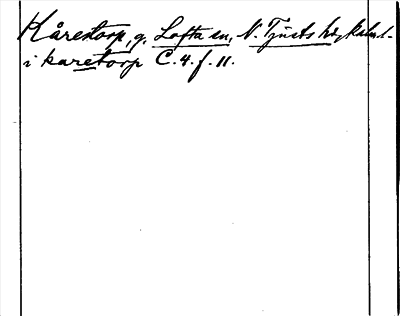 Kåretorp, g. Lofta sn, N. Tjusts hd, Kalm. l.
i karetorp C. 4. f. 11.